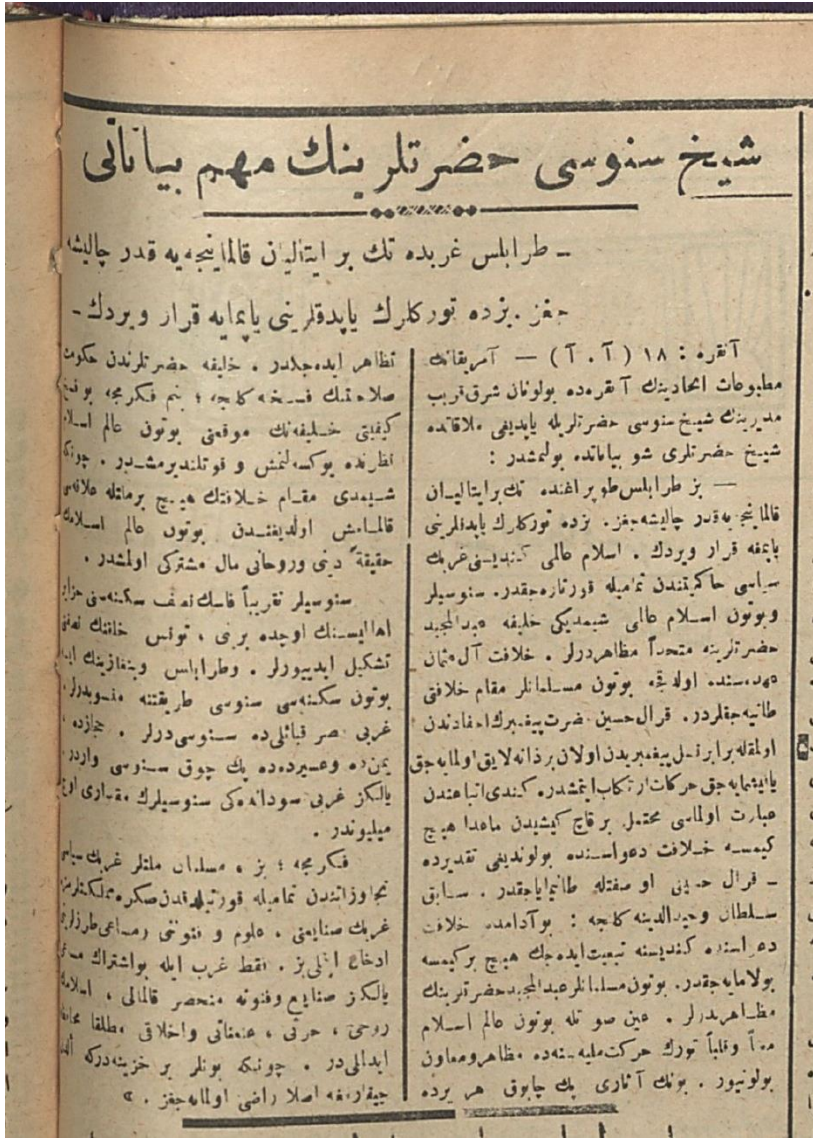 شيخ سنوسى حضرتلرينك مهم بياناتى
ـ طرابلس غربده تك بر ايتاليان قالماينجه‌يه قدر چاليشه
جغز . بزده توركلرك ياپدقلرينى ياپمايه قرار ويردك ـ
آنقره : ١٨ ( آ . آ ) — آمريقانك
مطبوعات اتحادينك آنقره‌ده بولونان شرق قريب
مديرينك شيخ سنوسى حضرتلريله ياپديغى ملاقاتده
شيخ حضرتلرى شو بياناتده بولنمشدر :
— بز طرابلس طوپراغنده تك بر ايتاليان
قالماينجه‌يه قدر چاليشه‌جغز . بزده توركلرك ياپدقلرينى
ياپمغه قرار ويردك . اسلام عالمى كنديسنى غربك
سياسى حاكميتندن تماميله قورتاره‌جقدر . سنوسيلر
وبوتون اسلام عالمى شيمديكى خليفه عبدالمجيد
حضرتلرينه متحداً مظاهردرلر . خلافت آل عثمان
عهده‌سنده اولدقجه بوتون مسلمانلر مقام خلافتى
طانيه‌جقلردر . قرال حسين حضرت پيغمبرك احفادندن
اولمقله برابر نسل پيغمبريدن اولان بر ذاته لايق اولمايه‌جق
ياقيشمايه‌جق حركات ارتكاب ايتمشدر . كندى اتباعندن
عبارت اولماسى محتمل بر قاچ كيشيدن ماعدا هيچ
كيمسه خلافت دعواسنده بولونديغى تقديرده
ـ قرال حسينى او صفتله طانيماياجقدر . سابق
سلطان وحيدالدينه كلنجه : بو آدامده خلافت
دعواسنده كنديسنه تبعيت ايده‌جك هيچ بر كيمسه
بولامايه‌جقدر . بوتون مسلمانلر عبدالمجيد حضرتلرينك
مظاهريدرلر . عين صورتله بوتون عالم اسلام
مادةً وقلباً تورك حركت مليه‌سنه‌ده مظاهر ومعاون
بولونيور . بونك آثارى پك چابوق هر يرده
تظاهر ايده‌جكدر . خليفه حضرتلرندن حكومت
صلاحتنك فسخنه كلنجه ؛ بنم فكرمجه بو فسخ
كيفيتى خليفه‌نك موقعنى بوتون عالم اسلام
نظرنده يوكسلتمش و قوتلنديرمشدر . چونكه
شيمدى مقام خلافتك هيچ بر ملتله علاقه‌سى
قالمامش اولديغندن بوتون عالم اسلامك
حقيقةً دينى وروحانى مال مشتركى اولمشدر .
سنوسيلر تقريباً فاسك نصف سكنه‌سنى جزاير
اهاليسنك اوچده برينى ، تونس خلقنك نصفنى
تشكيل ايدييورلر . وطرابلس وبنغازينك ايسه
بوتون سكنه‌سى سنوسى طريقتنه منسوبدرلر .
غربى مصر قبائلى ده سنوسى‌درلر . حجازده ،
يمن‌ده وعسيرده‌ده پك چوق سنوسى واردر .
يالكز غربى سودانده‌كى سنوسيلرك مقدارى اوچ
ميليوندر .
فكرمجه ؛ بز ، مسلمان ملتلر غربك سياسى
تجاوزاتندن تماميله قورتيلدقدن صكره مملكتلرمزه
غربك صنايعنى ، علوم و فنوننى و مساعى طرزلرينى
ادخال ايتملى‌يز . فقط غرب ايله بو اشتراك مساعى
يالكز صنايع وفنونه منحصر قالمالى ، اسلامك
روحى ، حرثى ، عنعناتى واخلاقى مطلقا محافظه
ايدلملى‌در . چونكه بونلر بر خزينه‌دركه الدن
چيقارلمغه اصلا راضى اولمايه‌جغز . »